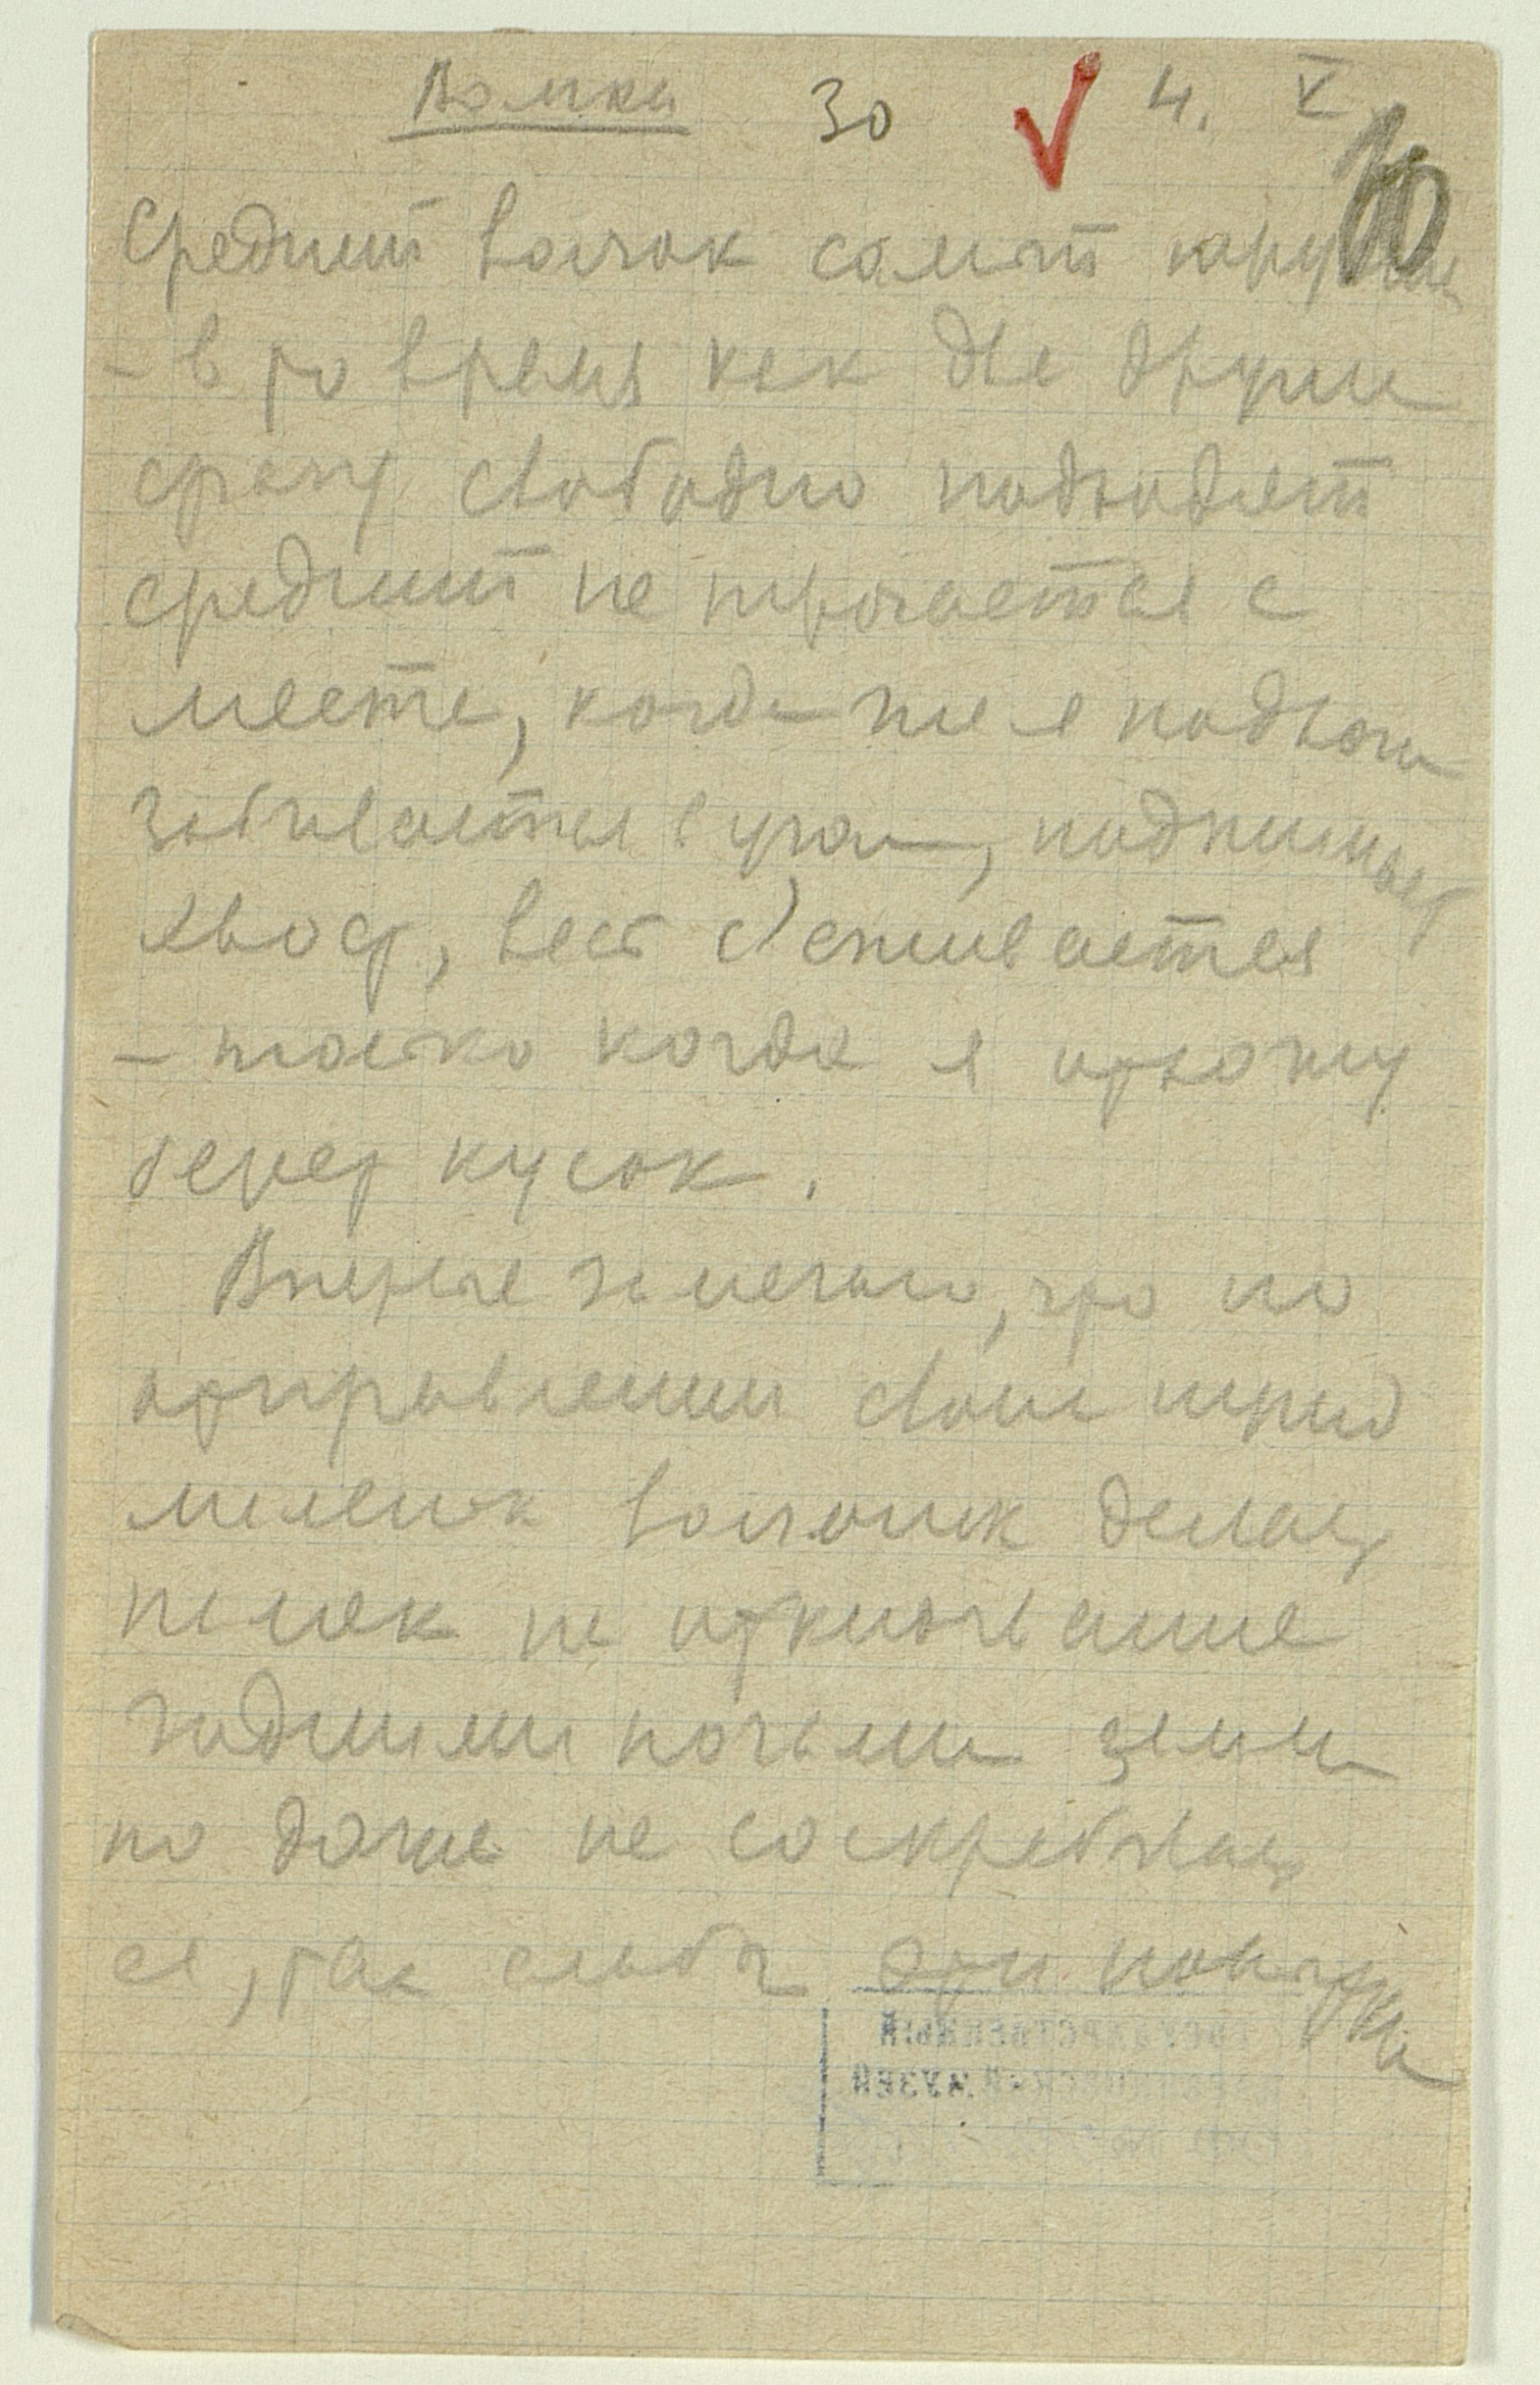 Волки 30 4. V
10
Средний волчок самый трусливый
- в то время как две другие
сразу свободно подходят
средний не трогается с
места, когда же я подхожу
забивается в угол, поджимает
хвост, весь съеживается
- только когда я отхожу
берет кусок.
Впервые замечаю, что по
отправлении своих нужд
маленьк волчонок делает
намек на откидывание
задними ногами земли
но даже не соскребывает
ее, так слабы эти
ГОСУДАРСТВЕННЫЙ
МУЗЕЙ